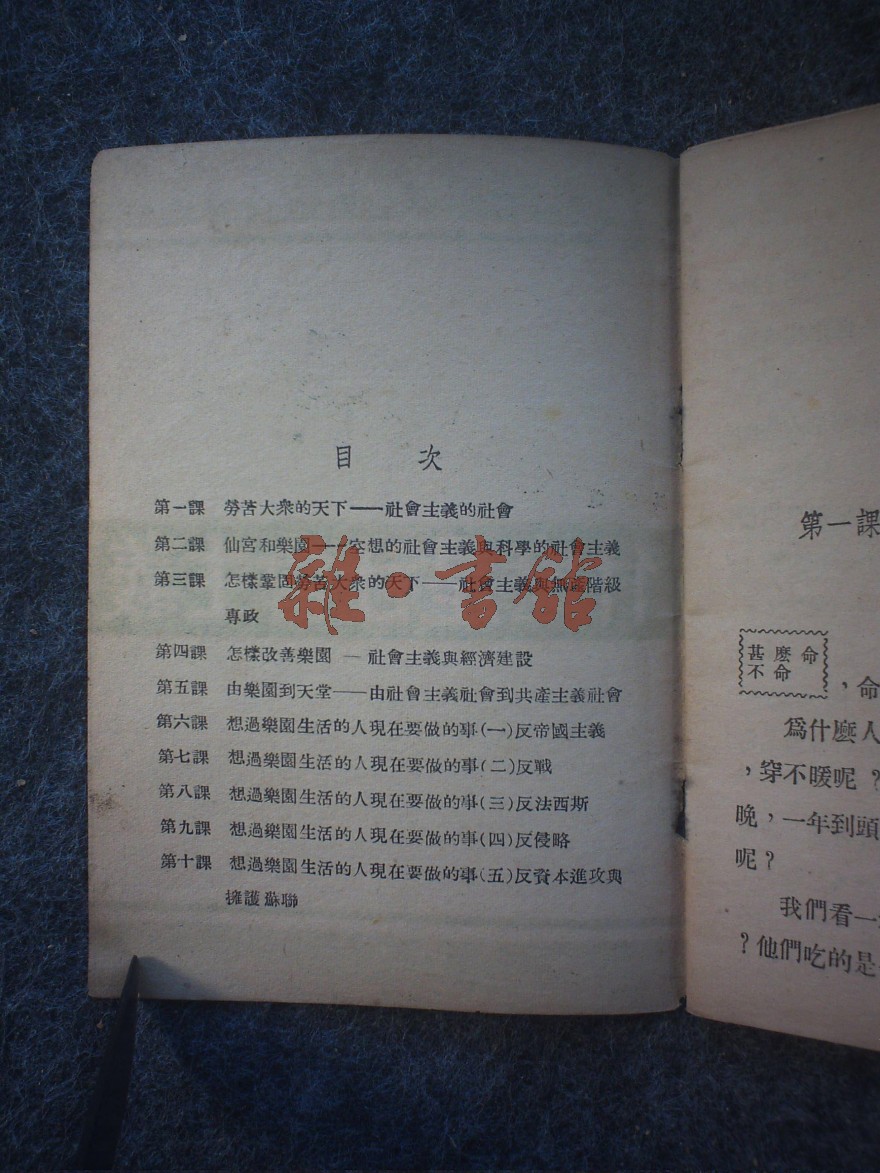 目 次
第一課 勞苦大衆的天下——社會主義的社會
第二課 仙宮和樂園——空想的社會主義與科學的社會主義
第三課 怎樣鞏固勞苦大衆的天下——社會主義與無產階級
專政
第四課 怎樣改善樂園—社會主義與經濟建設
第五課 由樂園到天堂——由社會主義社會到共產主義社會
第六課 想過樂園生活的人現在要做的事(一)反帝國主義
第七課 想過樂園生活的人現在要做的事(二)反戰
第八課 想過樂園生活的人現在要做的事(三)反法西斯
第九課 想過樂園生活的人現在要做的事(四)反侵略
第十課 想過樂園生活的人現在要做的事(五)反資本進攻與
擁護蘇聯
雜·書館
第一課
甚麽命
不命
，命
爲什麼人
，穿不暖呢？
晚，一年到頭
呢？
我們看一
？他們吃的是